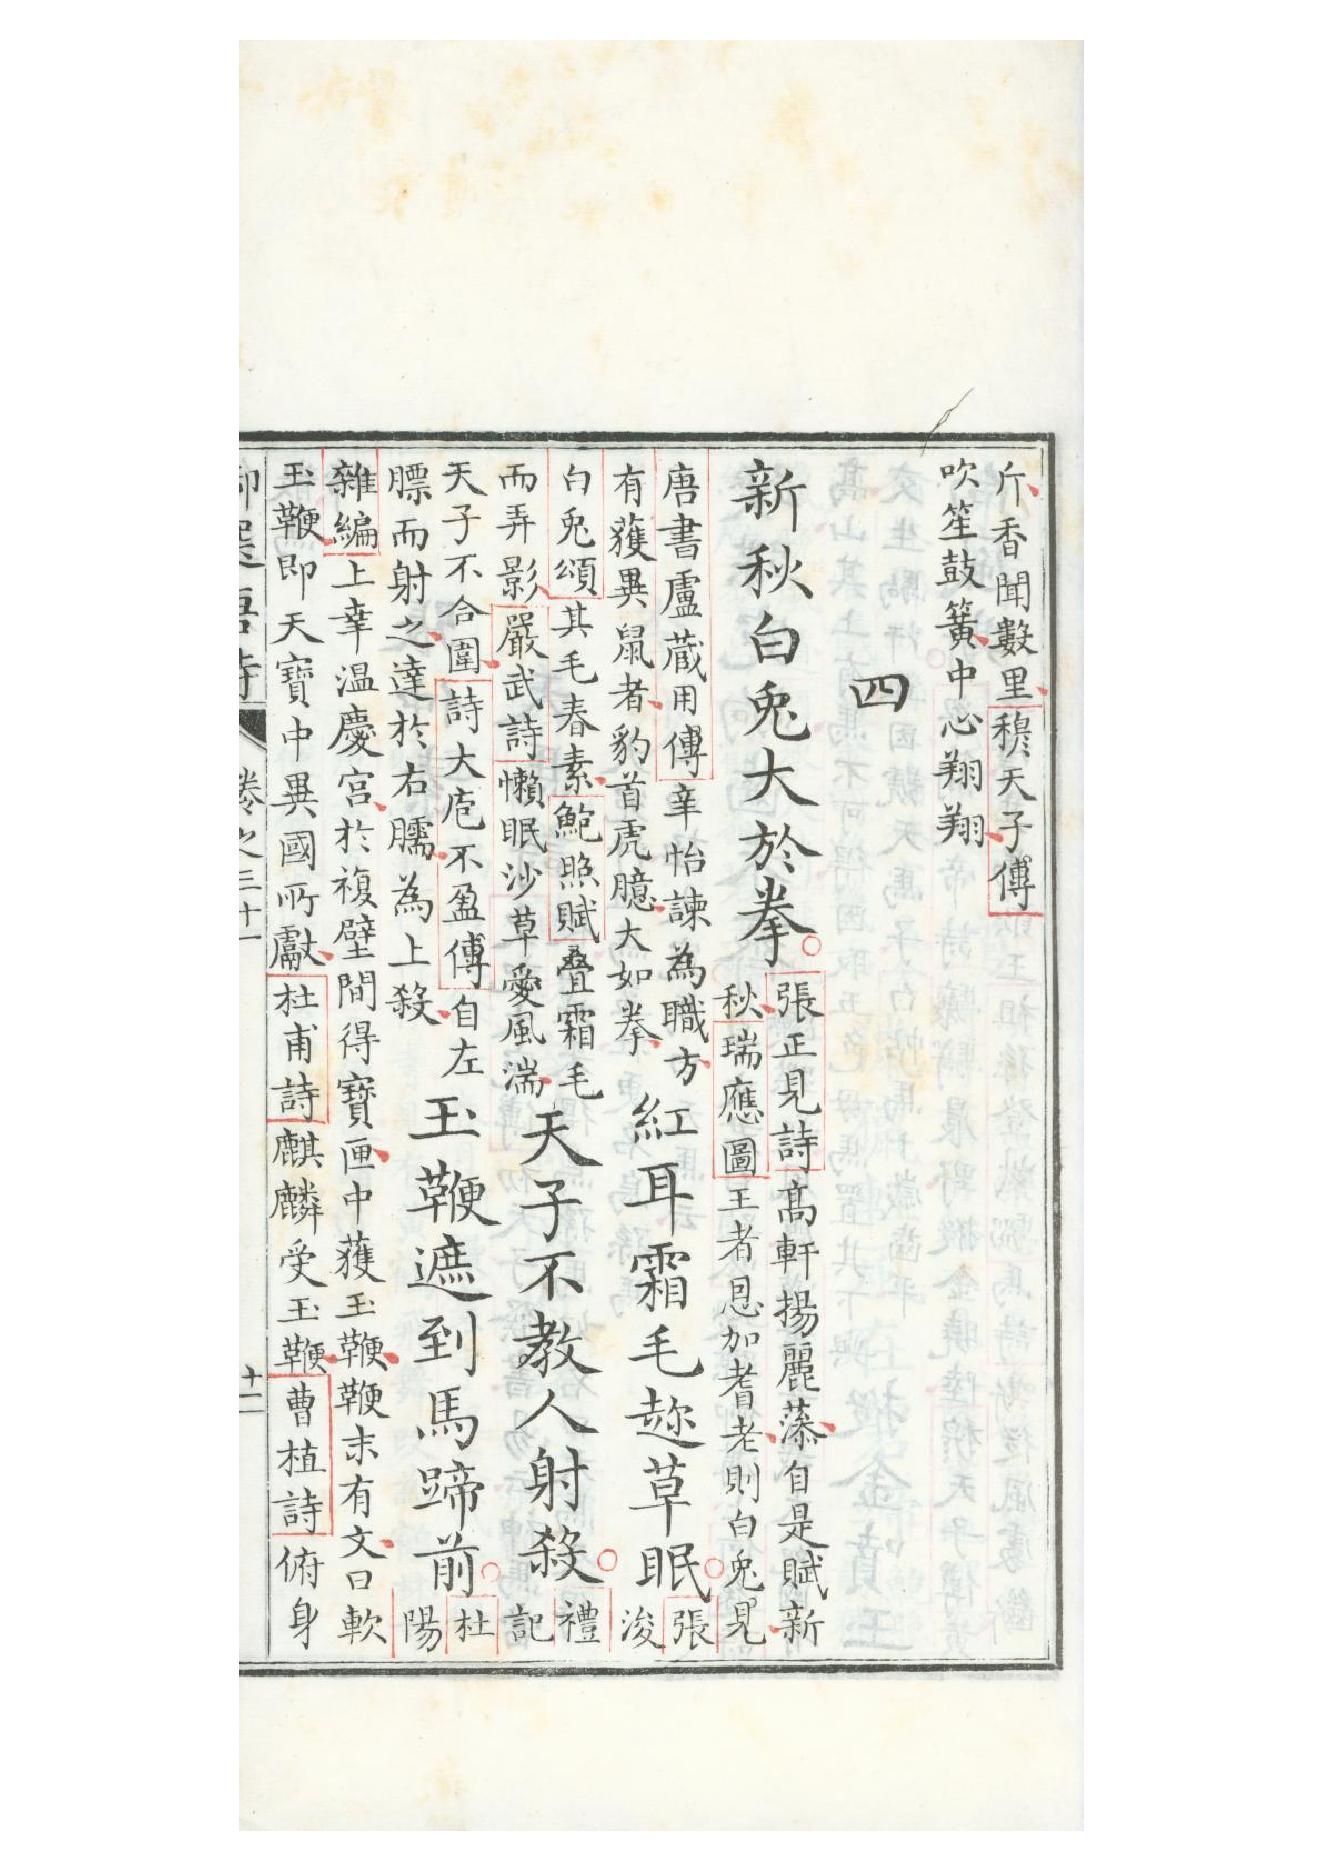 斤香聞數里穆天子傳
吹笙鼓簧中心翔翔
四
新秋白兔大於拳
張正見詩髙軒揚麗藻自是賦新
秋瑞應圖王者恩加耆老則白兔見
唐書盧藏用傳辛怡諫為職方
有獲異鼠者豹首虎臆大如拳
紅耳霜毛趂草眠
張
浚
白兔頌其毛春素鮑照賦叠霜毛
而弄影嚴武詩懶眠沙草愛風湍
天子不教人射殺
禮
記
天子不合圍詩大庖不盈傳自左
膘而射之達於右臑為上殺
玉鞭遮到馬蹄前
杜
陽
雜編上幸温慶宫於複壁間得寶匣中獲玉鞭鞭末有文曰軟
玉鞭即天寶中異國所獻杜甫詩麒麟受玉鞭曹植詩俯身
御選唐詩
卷之三十一
十一